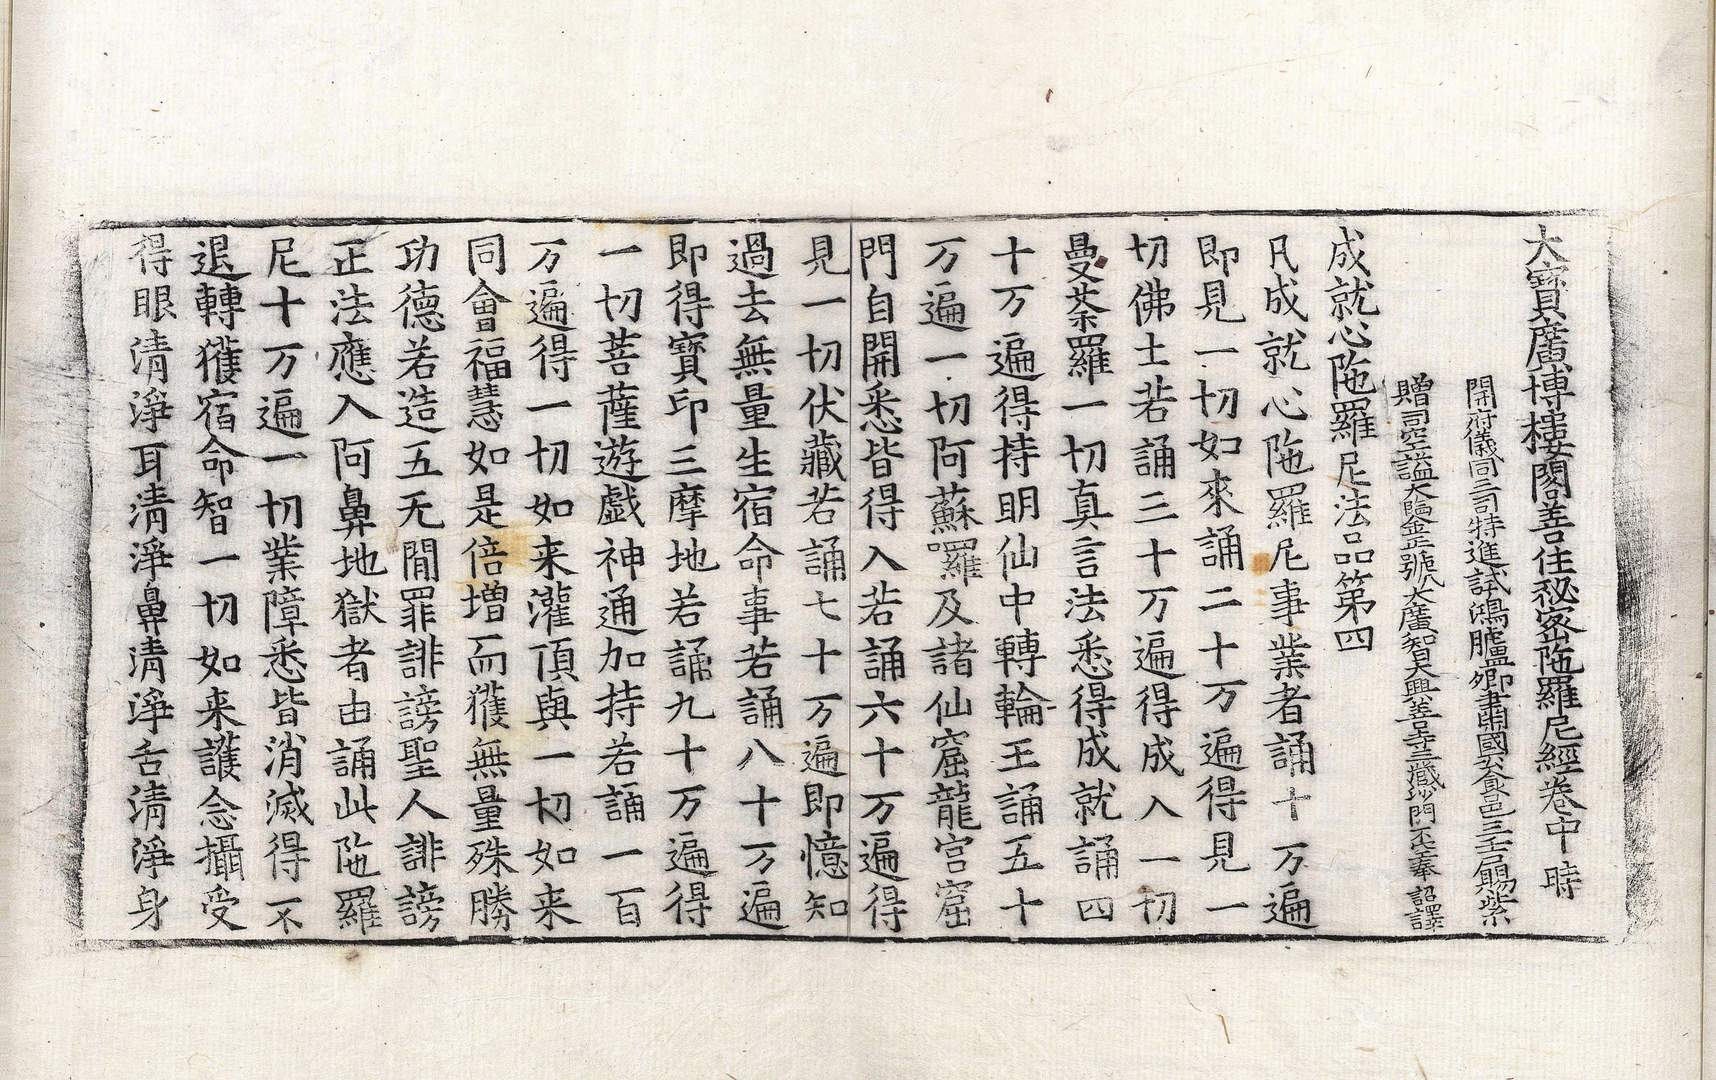 大寶廣博樓閣善住秘密陁羅尼經卷中 時
開府儀同三司特進試鴻臚卿肅國公食邑三千戶賜紫
贈司空謚大鑒正號大廣智大興善寺三藏沙門不空奉 詔譯
成就心陁羅尼法品第四
凡成就心陁羅尼事業者誦十万遍
即見一切如來誦二十万遍得見一
切佛土若誦三十万遍得成入一切
曼荼羅一切真言法悉得成就誦四
十万遍得持明仙中轉輪王誦五十
万遍一切阿蘇囉及諸仙窟龍宮窟
門自開悉皆得入若誦六十万遍得
見一切伏藏若誦七十万遍即憶知
過去無量生宿命事若誦八十万遍
即得寶印三摩地若誦九十万遍得
一切菩薩遊戲神通加持若誦一百
万遍得一切如来灌頂與一切如来
同會福慧如是倍增而獲無量殊勝
功德若造五无閒罪誹謗聖人誹謗
正法應入阿鼻地獄者由誦此陁羅
尼十万遍一切業障悉皆消滅得不
退轉獲宿命智一切如来護念攝受
得眼清淨耳清淨鼻清淨舌清淨身